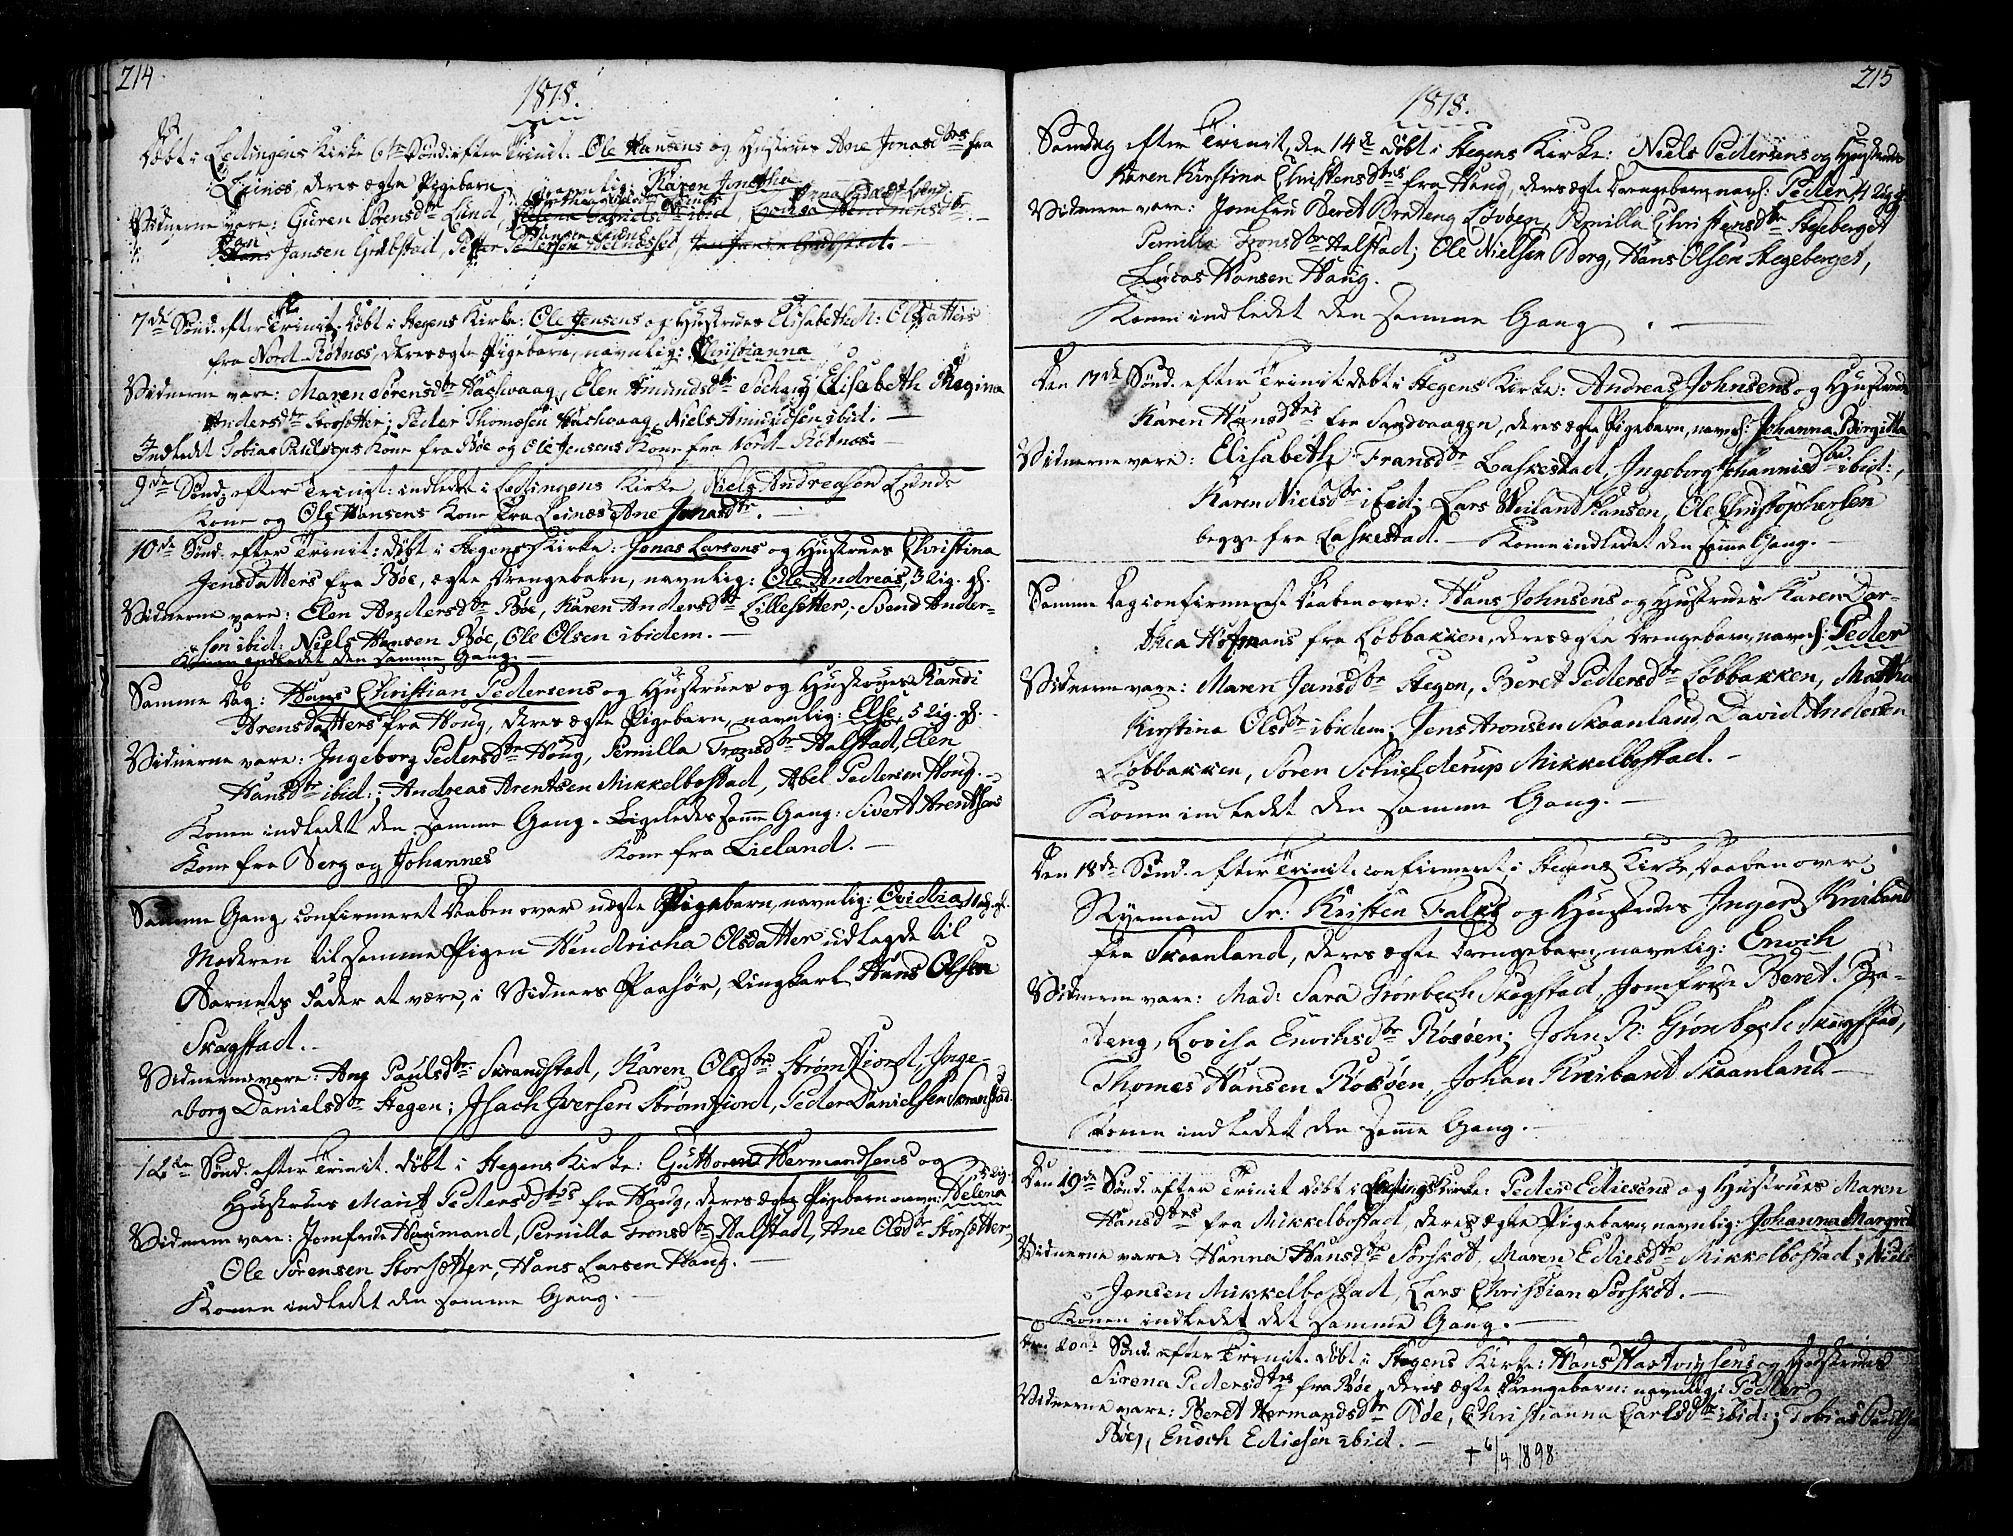 214
1818.
Døbt i Lødingens Kirke 6te Sønd. efter Trinit. Ole Hansens og Hustrues Ane Jonasdtrs fra
Leines, deres ægte Pigebarn, navnlig: Karen Jonetha
Vidnerne vare: Guren Sørensdtr Lund,
Jansen Grøbstad, Peter Pedersen
7de Sønd. efter Trinit. døbt i Stegens Kirke: Ole Jensens og Hustrues Elisabeth Olsdatters
fra Nord Røtnæs, deres ægte Pigebarn, navnlig: Christianna
Vidnerne vare: Maren Sørensdtr Hashvaag, Elen Amundsdtr Elisabeth Regina
Andersdtr Storsetter; Peder Thomesen Hashvaag, Niels Amundsen ibid. —
Indledet Tobias Paulsens Kone fra Bøe og Ole Jensens Kone fra Nord Røtnæs —
9de Sønd. efter Trinit: indledet i Lødingens Kirke Niels Andreasen Lunds
Kone og Ole Hansens Kone fra Leinæs Ane Jonasdtr. —
10de Sønd. efter Trinit: døbt i Stegens Kirke: Jonas Larsens og Hustrues Christina
Jensdatters fra Bøe, ægte Drengebarn, navnlig: Ole Andreas, 3 Ug. gl.
Vidnerne vare: Elen Andersdtr Bøe, Karen Andersdtr Lillesetter; Svend Ander-
sen ibid: Niels Hansen Bøe, Ole Olsen ibidem. —
Konen indledet den samme Gang. —
Samme Dag: Hans Christian Pedersens og Hustrues og Hustrues Randi
Arensdatters fra Houg, deres ægte Pigebarn, navnlig: Else, 5 Ug. gl. —
Vidnerne vare: Ingeborg Pedersdtr Houg, Pernilla Tronsdtr Halstad, Elen
Hansdtr ibid.; Andreas Arentsen Mikkelbostad, Abel Pedersen Houg. —
Konen indledet den samme Gang. Ligeledes samme Gang: Sivert Arentsens
Kone fra Berg og Johannes Kone fra Lieland. —
Samme Gang confirmeret Daaben over uægte Pigebarn, navnlig: Ovidia,
Moderen til samme Pigen Hendricha Olsdatter udlagde til
Barnets Fader at være, i Vidners Paahør, Ungkarl Hans Olsen
Skagstad. —
Vidnerne vare: Ane Paulsdtr Skrandstad, Karen Olsdtr Strømfiord, Inge-
borg Danielsdtr Stegen; Isach Iversen Strømfiord, Peder Danielsen
12te Sønd. efter Trinit. døbt i Stegens Kirke: Guttorm Hermandsens og
Hustrues Marit Pedersdtrs fra Haug, deres ægte Pigebarn navn: Helena 5 Ug.
Vidnerne vare: Jomfrue Haumand, Pernilla Tronsdtr Halstad, Ane Olsdtr Storsetter
Ole Sørensen Storsetter, Hans Larsen Haug. —
Konen indledet den samme Gang. —
215
1818.
Søndag efter Trinit, den 14de døbt i Stegens Kirke: Niels Pedersens og Hustrues
Karen Kirstina Christensdtrs fra Haug, deres ægte Drengebarn, navnl: Peder 2 Ug. gl.
Vidnerne vare: Jomfru Beret Brateng Løvøen, Pernilla Christensdtr Stegeberget
Pernilla Tronsdtr Halstad; Ole Nielsen Berg, Hans Olsen Stegeberget,
Lucas Hansen Haug.
Konen indledet den samme Gang. —
Den 17de Sønd. efter Trinit. døbt i Stegens Kirke: Andreas Johnsens og Hustrues
Karen Hansdtrs fra Sandvaagen, deres ægte Pigebarn, navnl: Johanna Birgitta
Vidnerne vare: Elisabeth Fransdtr Laskestad, Ingeborg Johannisdtr ibid:,
Karen Nielsdtr ibid; Lars Weiland Hansen, Ole Christophersen
begge fra Laskestad. — Konen indledet den samme Gang. —
Samme Dag confirmeret Daaben over: Hans Johnsens og Hustrues Karen Dor-
thea Hofmans fra Løbbakken, deres ægte Drengebarn, navnl: Peder
Vidnerne vare: Maren Jensdtr Stegen, Beret Pedersdtr Løbbakken, Martha
Kirstina Olsdtr ibidem; Jens Aronsen Skaanland, David Andersen
Løbbakken, Søren Schielderup Mikkelbostad. —
Konen indledet den samme Gang. —
Den 18de Sønd. efter Trinit. confirmeret i Stegens Kirke, Daaben over
Styrmand Sr: Kristen Falchs og Hustrues Inger Kreibant
fra Skaanland, deres ægte Drengebarn, navnlig: Enoch
Vidnerne vare: Mad: Sara Grønbech Skagstad, Jomfrue Beret Bra-
teng, Lovisa Enochsdtr Røsøen; John R: Grønbech Skagstad,
Thomes Hansen Røsøen, Johan Kreibant Skaanland —
Konen indledet den samme Gang. —
Den 19de Sønd. efter Trinit døbt i Lødings Kirke: Peder Ediesens og Hustrues Maren
Hansdtrs fra Mikkelbostad, deres ægte Pigebarn navnlig: Johanna Margret
Vidnerne vare: Hanna Hansdtr Sørskot, Maren Ediesdtr Mikkelbostad; Niels
Jensen Mikkelbostad, Lars Christian Sørskot. —
Konen indledet det samme Gang. —
20de Sønd. efter Trinit. døbt i Stegens Kirke: Hans Hartvigsens og Hustrues
Sirena Pedersdtrs fra Bøe, deres ægte Drengebarn: navnlig: Peder
Vidnerne vare: Beret Hermandsdtr Bøe, Christianna Carlsdtr ibid.; Tobias Paulsen
Bøe,, Enoch Ediesen ibid. —
† 6/4 1898